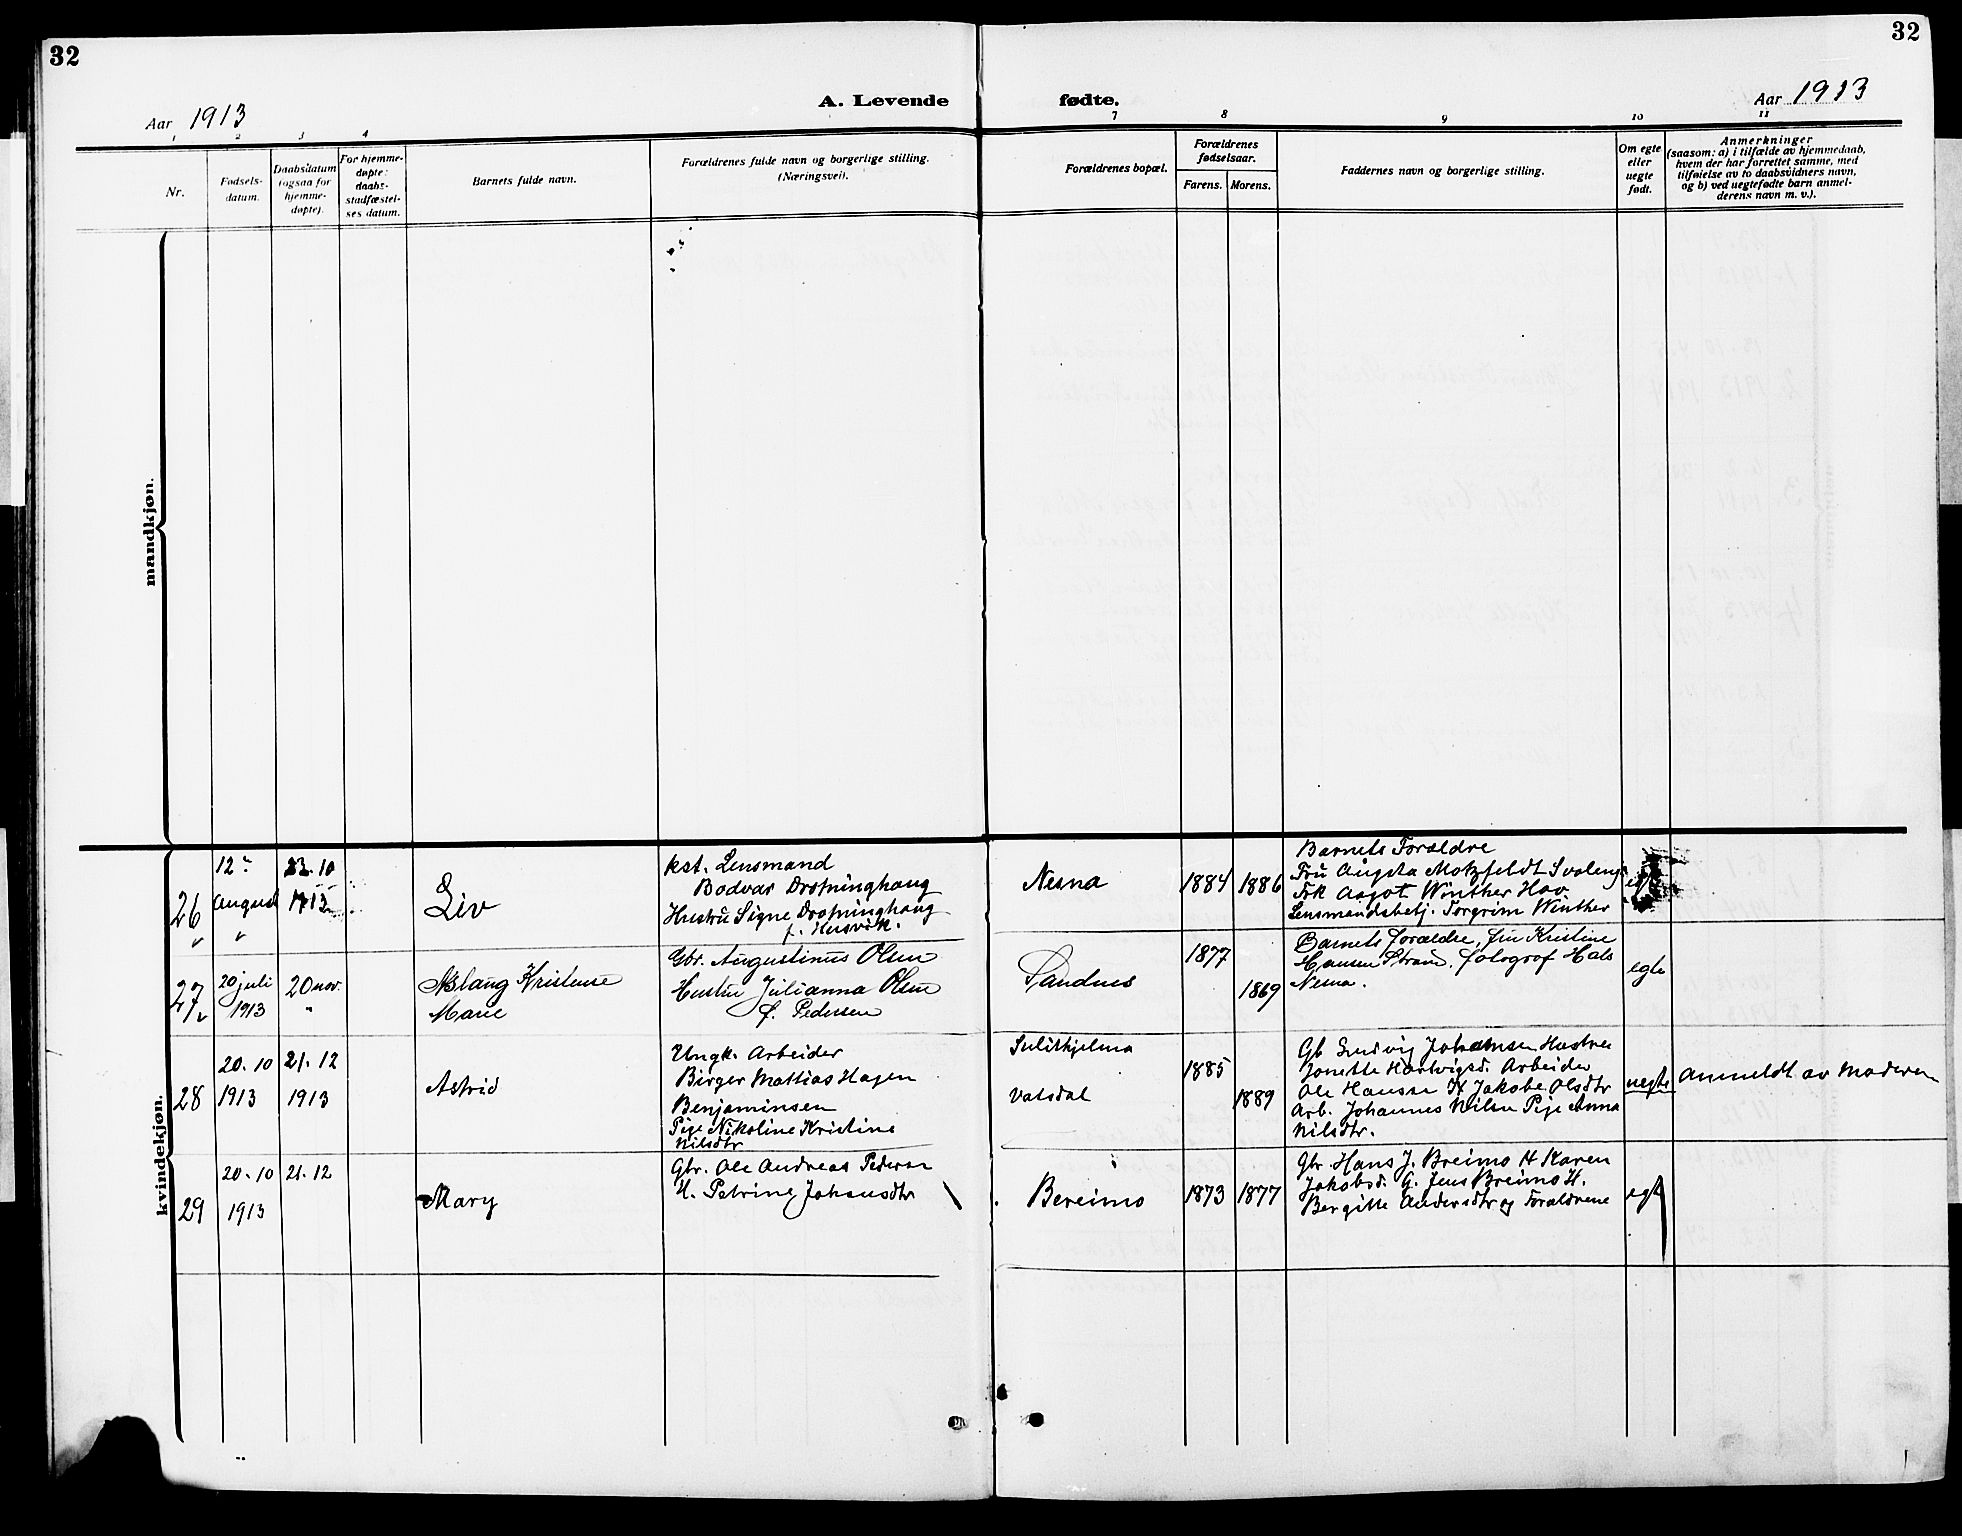 32
32
Aar 1913
A. Levende
fødte.
Aar 1913
1
2
3
4
7
8
9
10
11
Nr.
Fødsels-
datum.
Daabsdatum
(ogsaa for
hjemme-
døpte).
For hjemme-
døpte:
daabs-
stadfæstel-
ses datum.
Barnets fulde navn.
Forældrenes fulde navn og borgerlige stilling.
(Næringsvei).
Forældrenes bopæl.
Forældrenes
fødselsaar.
Farens.
Morens.
Faddernes navn og borgerlige stilling.
Om egte
eller
uegte
født.
Anmerkninger
(saasom: a) i tilfælde av hjemmedaab,
hvem der har forrettet samme, med
tilføielse av to daabsvidners navn,
og b) ved uegtefødte barn anmel-
derens navn m. v.).
mandkjøn.
kvindekjøn.
26
12
August
23.10
1913
Liv
kst. Lensmand
Bodvar Drotninghaug
Hustru Signe Drotninghaug
f. Husvik.
Nesna
1884
1886
Barnets Forældre
Fru Augusta Motzfeldt Svaleng
Frk Aagot Winther Hov
Lensmandsbetj. Torgrim Winther
egte
27
20 juli
1913
20 nov.
"
Aslaug Kristense
Marie
Gbr. Augustinus Olsen
Hustru Julianna Olsen
f. Pedersen
Sandnes
1877
1869
Barnets forældre, fru Kristine
Hansen Strand, fotograf Hals
Nesna.
egte
28
20.10
1913
21.12
1913
Astrid
Ungk. Arbeider
Birger Mattias Hagen
Benjaminsen
Pige Nikoline Kristine
Nilsdtr
Sulithjelma
Valsdal
1885
1889
Gb Ludvig Johansen Hustru
Jonette Hartvigsd. Arbeider
Ole Hansen H Jakobe Olsdtr
Arb. Johannes Nilsen Pige Anna
Nilsdtr.
uegte
Anmeldt av Moderen
29
20.10
1913
21.12
Mary
Gbr. Ole Andreas Pedersen
H. Petrine Johansdtr
Bereimo
1873
1877
Gbr Hans J. Breimo H Karen
Jakobsd. G. Jens Breimo H.
Bergitte Andersdtr og Forældrene
egte